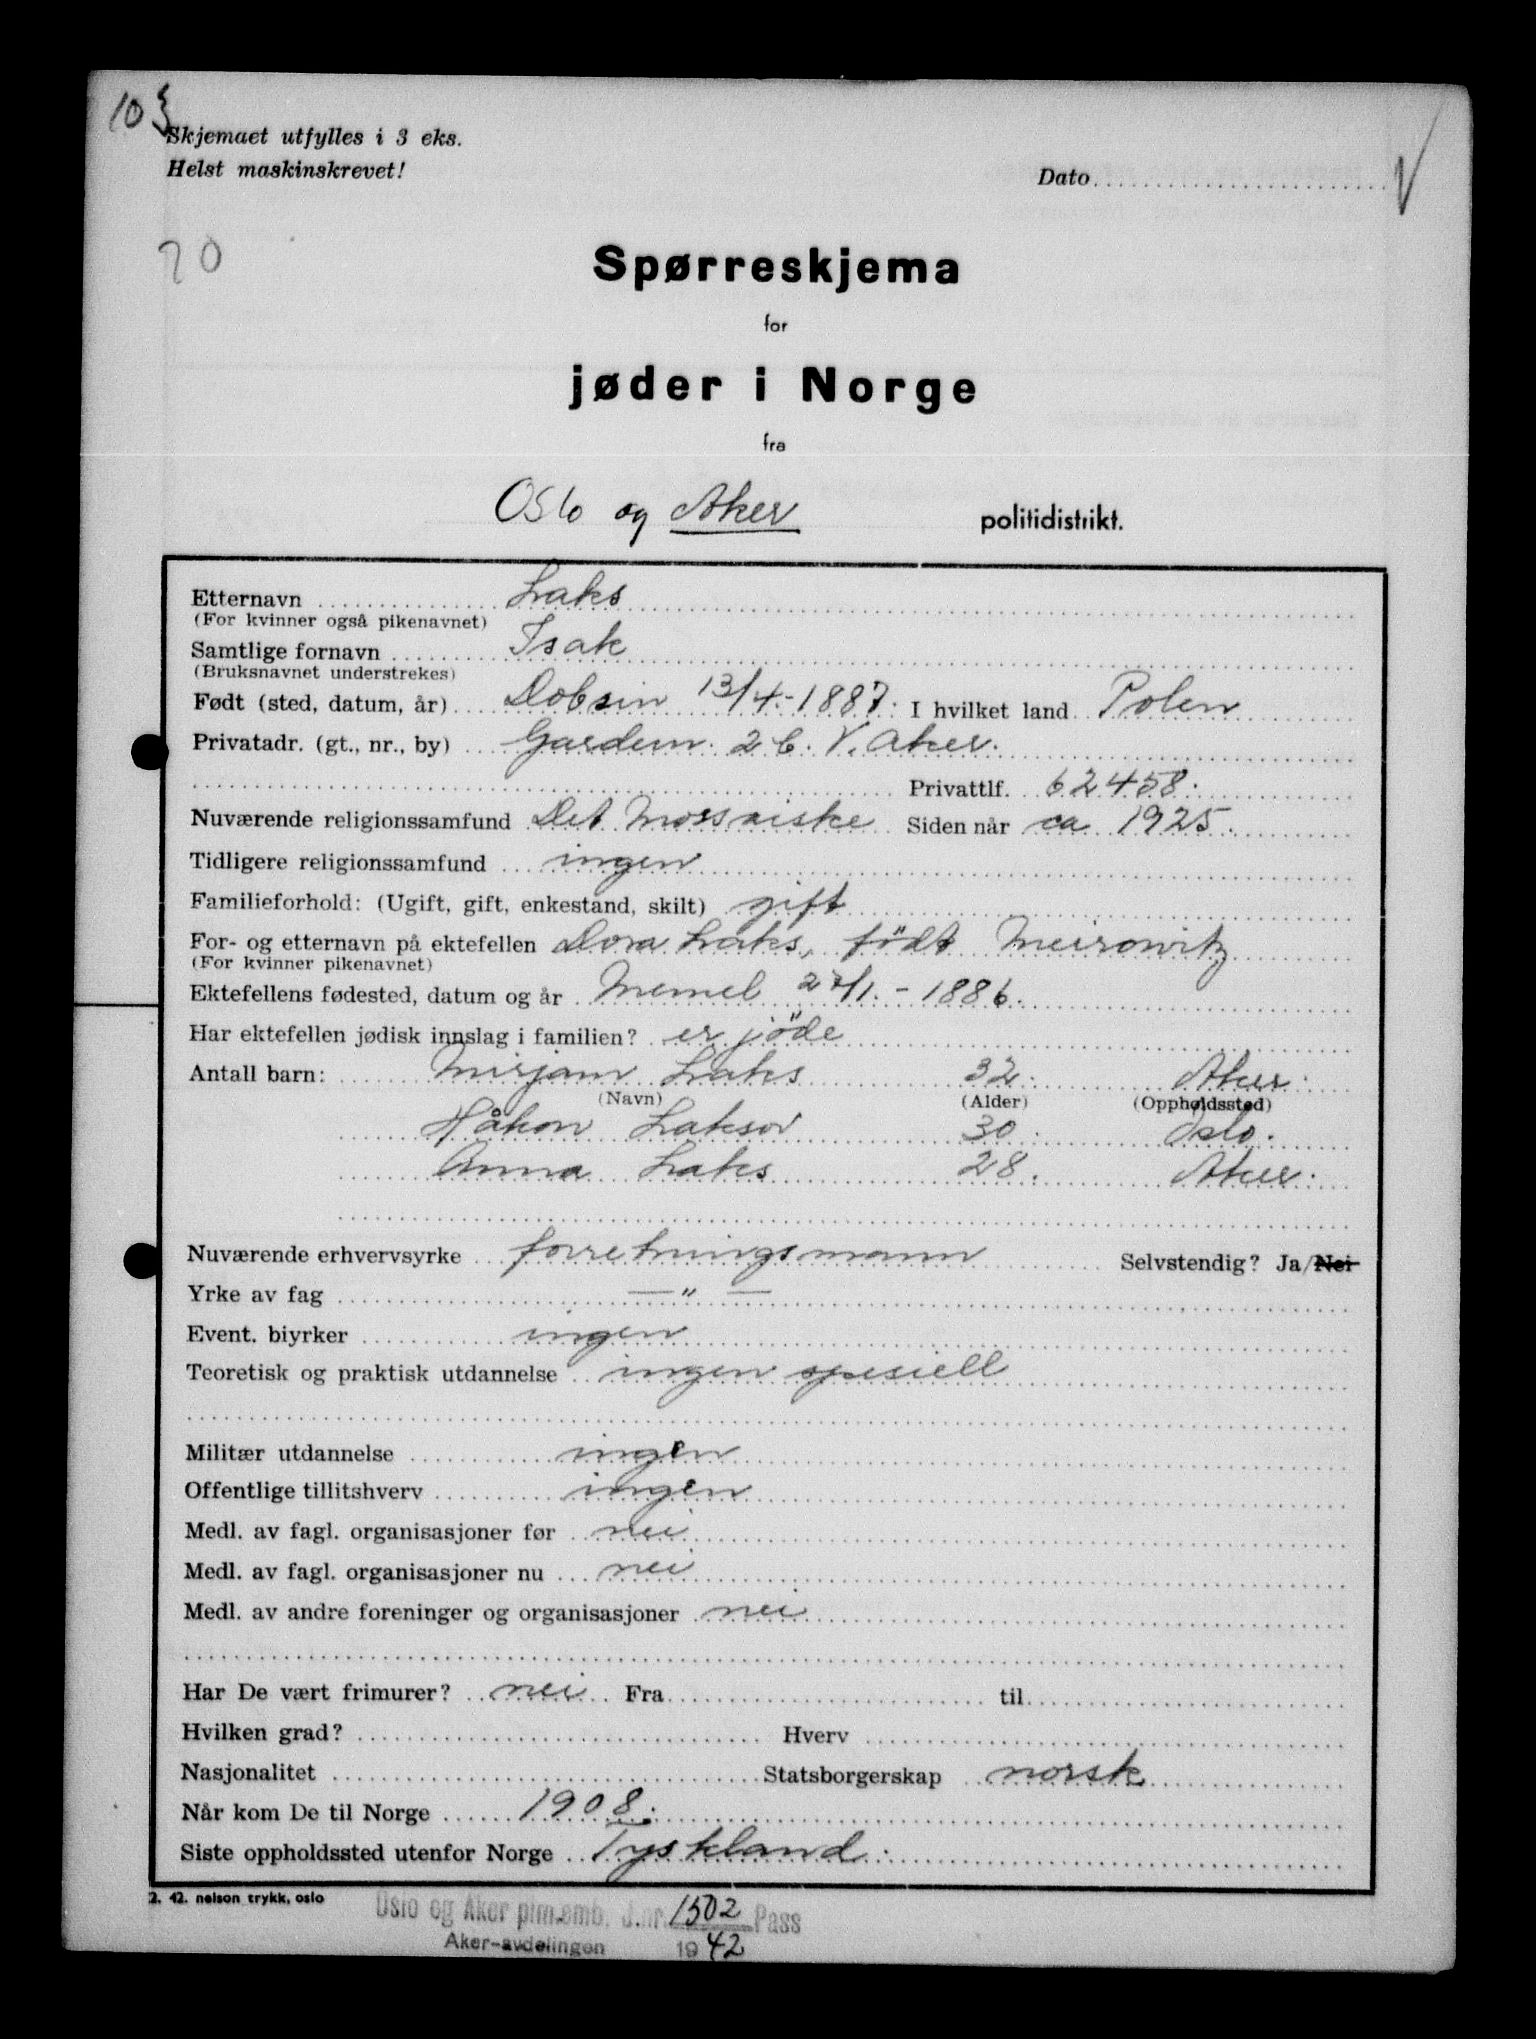 103
Skjemaet utfylles i 3 eks.
Helst maskinskrevet!
Dato
V
20
Spørreskjema
for
jøder i Norge
fra
Oslo og Aker politidistrikt.
Etternavn Laks
(For kvinner også pikenavnet)
Samtlige fornavn Isak
(Bruksnavnet understrekes)
Født (sted, datum, år) Dobsin 13/4.-1887. I hvilket land Polen
Privatadr. (gt., nr., by) Gardern. 2 b. V. Aker.
Privattlf. 62458.
Nuværende religionssamfund Det Mossaiske Siden når ca 1925.
Tidligere religionssamfund ingen
Familieforhold: (Ugift, gift, enkestand, skilt) gift
For- og etternavn på ektefellen Dora Laks, födt Meirowitz
(For kvinner pikenavnet)
Ektefellens fødested, datum og år Memel 27/1.-1886.
Har ektefellen jødisk innslag i familien? er jöde
Antall barn: Mirjam Laks 32. Aker.
(Navn) (Alder) (Oppholdssted)
Håkon Laksov 30. Oslo.
Anna Laks 28. Aker.
Nuværende erhvervsyrke forretningsmann Selvstendig? Ja/Nei
Yrke av fag —"—
Event. biyrker ingen
Teoretisk og praktisk utdannelse ingen spesiell
Militær utdannelse ingen
Offentlige tillitshverv ingen
Medl. av fagl. organisasjoner før nei
Medl. av fagl. organisasjoner nu nei
Medl. av andre foreninger og organisasjoner nei
Har De vært frimurer? nei Fra til
Hvilken grad? Hverv
Nasjonalitet Statsborgerskap norsk
Når kom De til Norge 1908.
Siste oppholdssted utenfor Norge Tyskland.
2. 42. nelson trykk, oslo
Oslo og Aker plm.emb. J.nr. 1502 Pass
Aker-avdelingen 1942